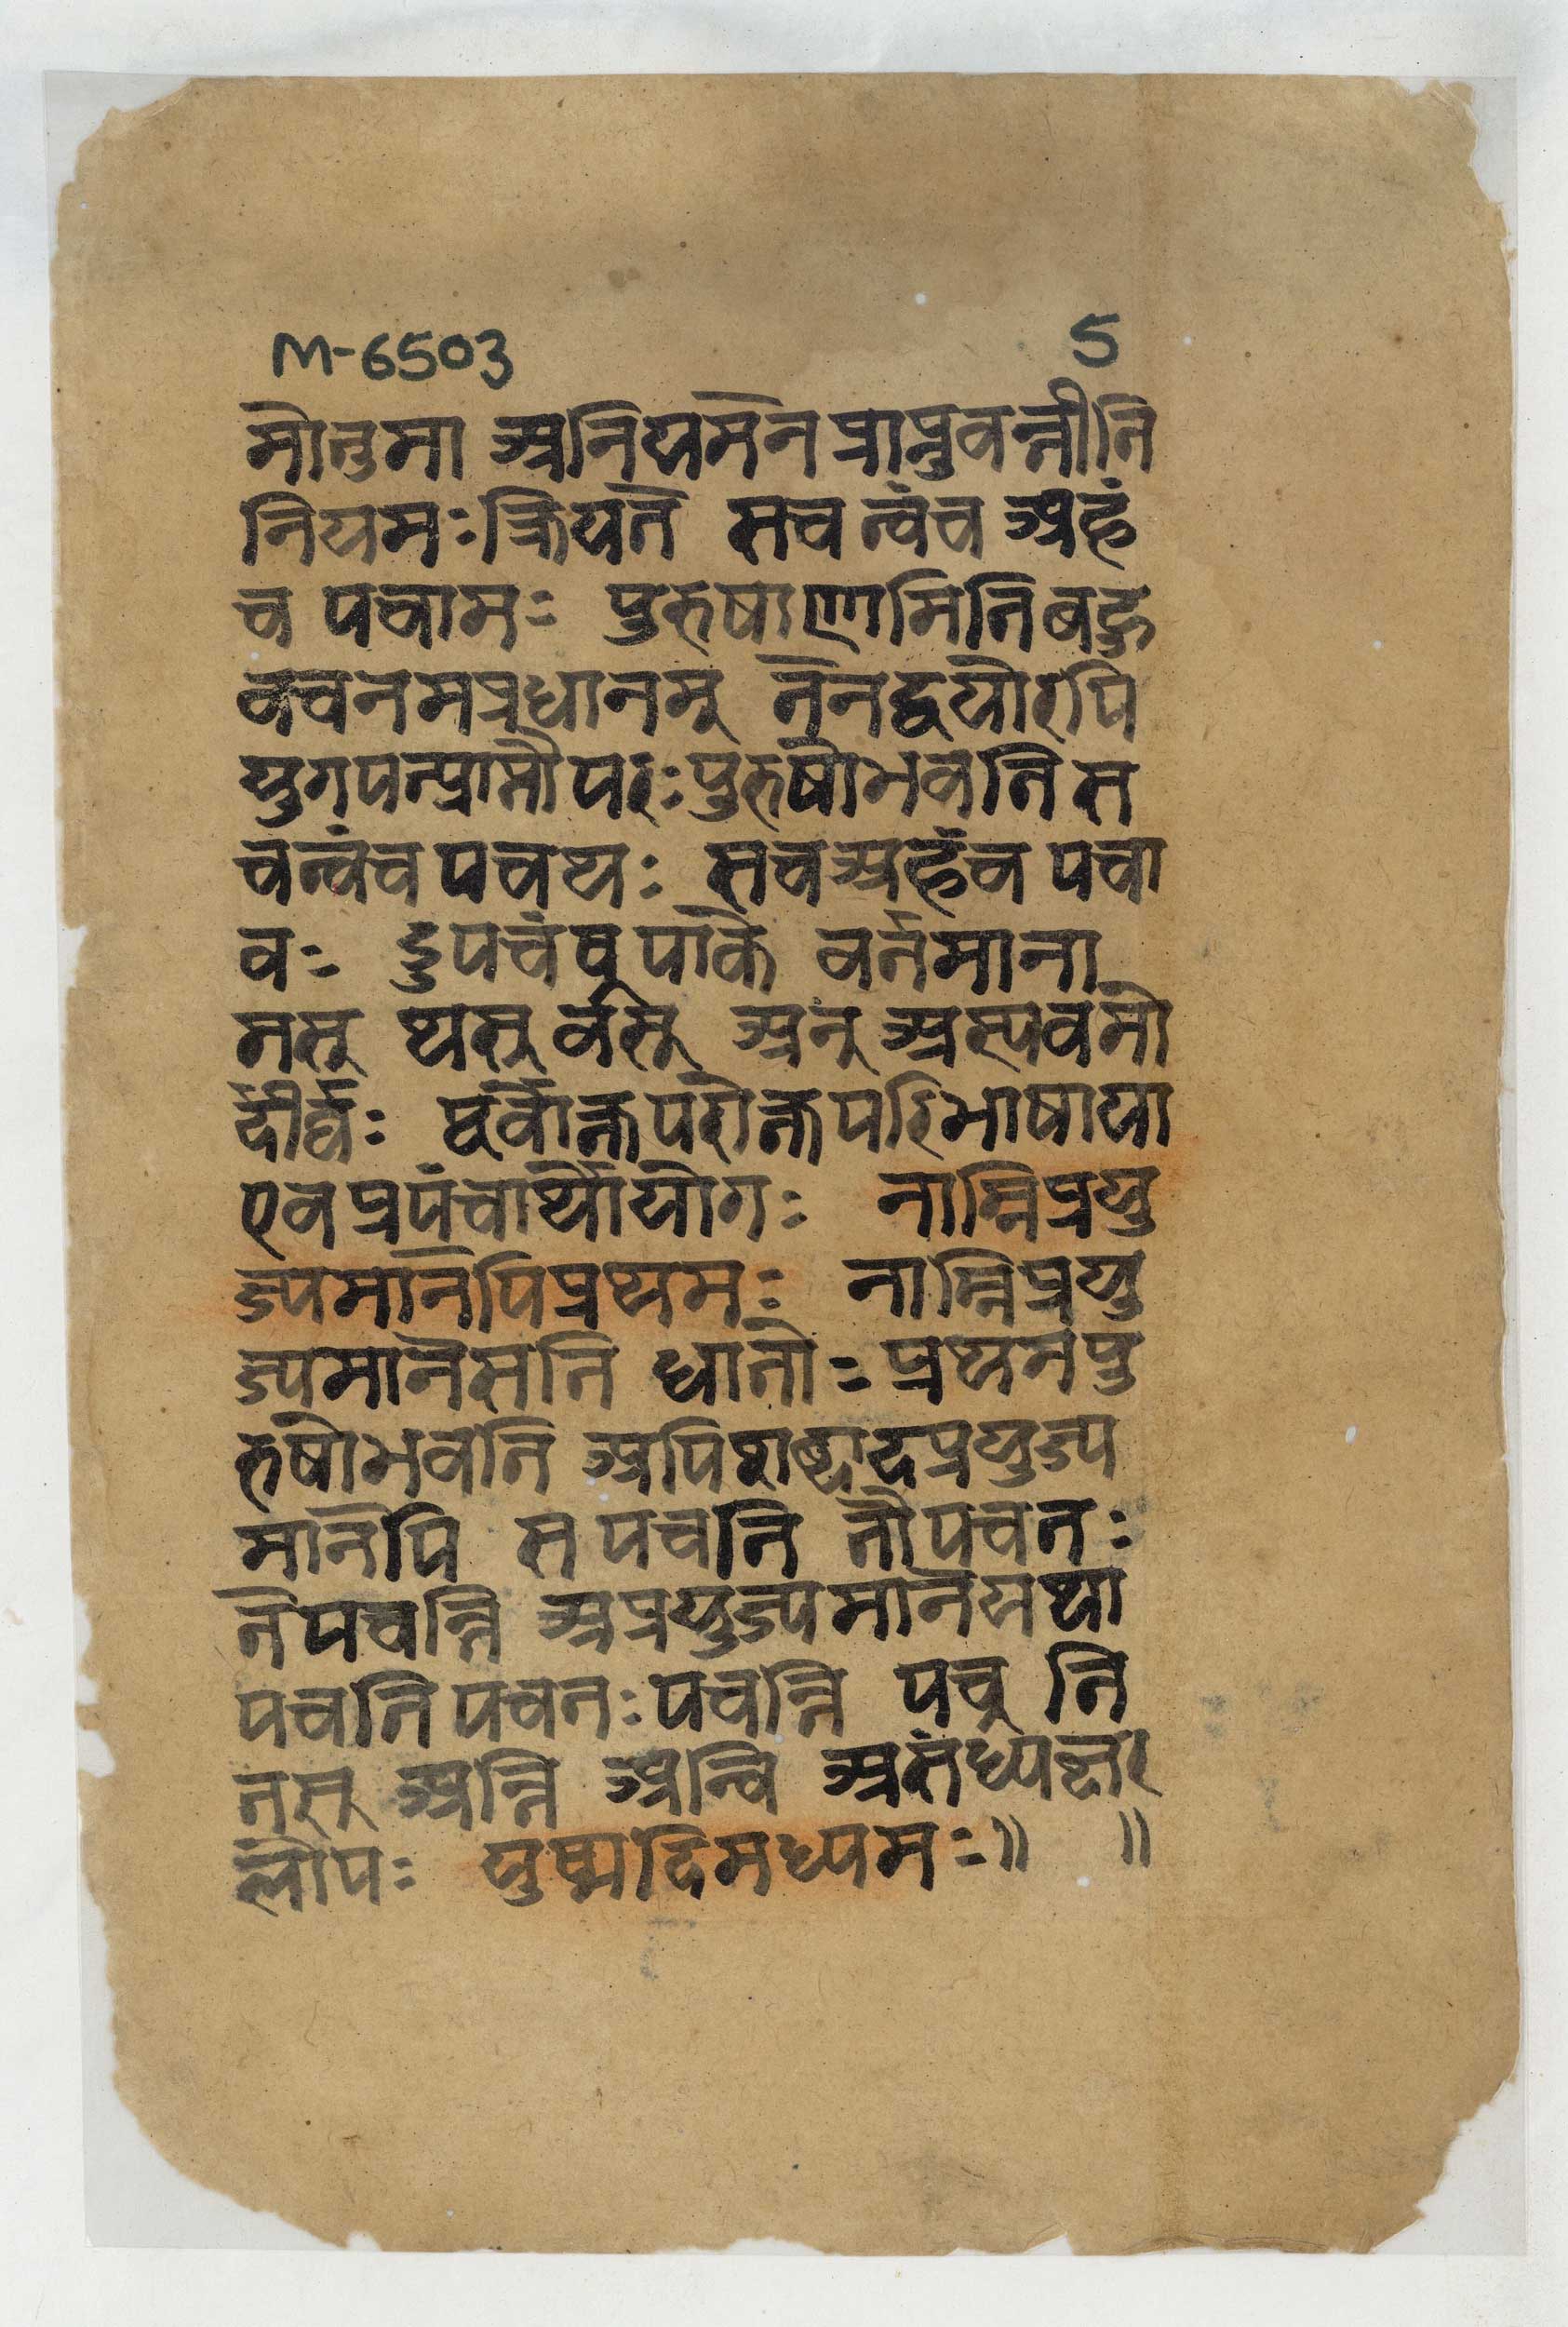 M-6503 5
मोनुमा अनियमेन प्राप्नुवन्तीति
नियमः क्रियते सच त्वंच अहं
च पचामः पुरुषाणामिति बहु
वचनमप्रधानम् तेनद्वयोरपि
युगपत्प्राप्तौ परः पुरुषोभवति स
चत्वंच पचथः सचअहंच पचा
वः डुपचंष् पाके वर्तमाना
तस् थस् वस् अन् अस्यवमो
र्दीर्घः पूर्वोक्तपरोक्तपरिभाषाया
एवप्रपंचार्थोयोगः नाम्निप्रयु
ज्यमानेपिप्रथमः नाम्निप्रयु
ज्यमानेसति धातोः प्रथमपु
रुषोभवति अपिशब्दादप्रयुज्य
मानेपि स पचति तौपचतः
तेपचन्ति अप्रयुज्यमानेयथा
पचति पचतः पचन्ति पच् ति
तस् अन्ति अन्वि असंध्यक्षर
लोपः युष्मदिमध्यमः॥ ॥